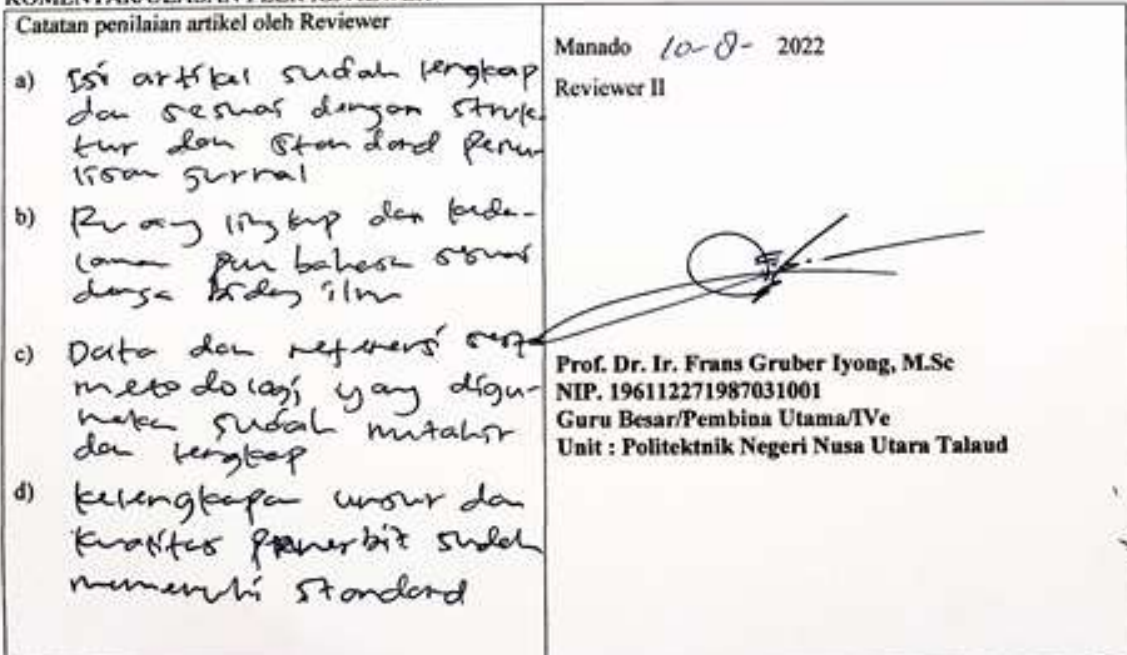 Catatan penilaian artikel oleh Reviewer
a) Isi artikel sudah lengkap
dan sesuai dengan struk-
tur dan standard penu-
lisan jurnal
b) Ruang lingkup dan keda-
laman pembahasan sesuai
dengan bidang ilmu
c) Data dan referensi serta
metodologi yang digu-
nakan sudah mutahir
dan lengkap
d) kelengkapan unsur dan
kualitas penerbit sudah
memenuhi standard
Manado 10-8- 2022
Reviewer II
Prof. Dr. Ir. Frans Gruber Iyong, M.Sc
NIP. 196112271987031001
Guru Besar/Pembina Utama/IVe
Unit : Politektnik Negeri Nusa Utara Talaud